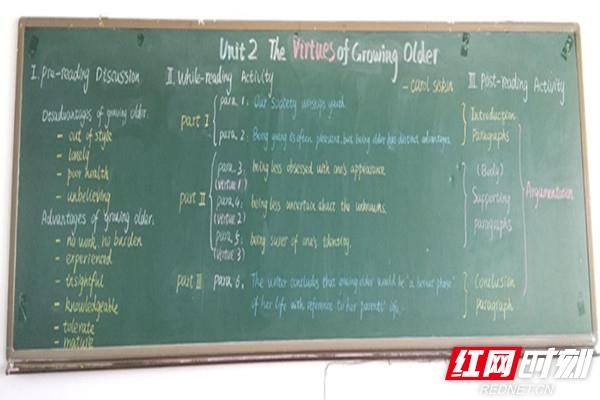 Unit 2 The Virtues of Growing Older
- Carol Siskin
I. Pre-reading Discussion
Disadvantages of growing older.
- out of style
- lonely
- poor health
- unbelieving
Advantages of growing older.
- no work, no burden
- experienced
- insightful
- knowledgeable
- tolerate
- mature
II. While-reading Activity
part I
para 1. Our society worships youth.
para 2. Being young is often pleasant, but being older has distinct advantages.
part II
para 3. being less obsessed with one's appearance
(virtue 1)
para 4. being less uncertain about the unknowns.
(virtue 2)
para 5. being surer of one's identity.
(virtue 3)
part III
para 6. The writer concludes that growing older would be "a bonus phase"
of her life with reference to her parents' life.
III. Post-reading Activity
Introduction
Paragraphs
(Body)
Supporting
paragraphs
Conclusion
paragraph
Argumentation
红网时刻
REDNET.CN